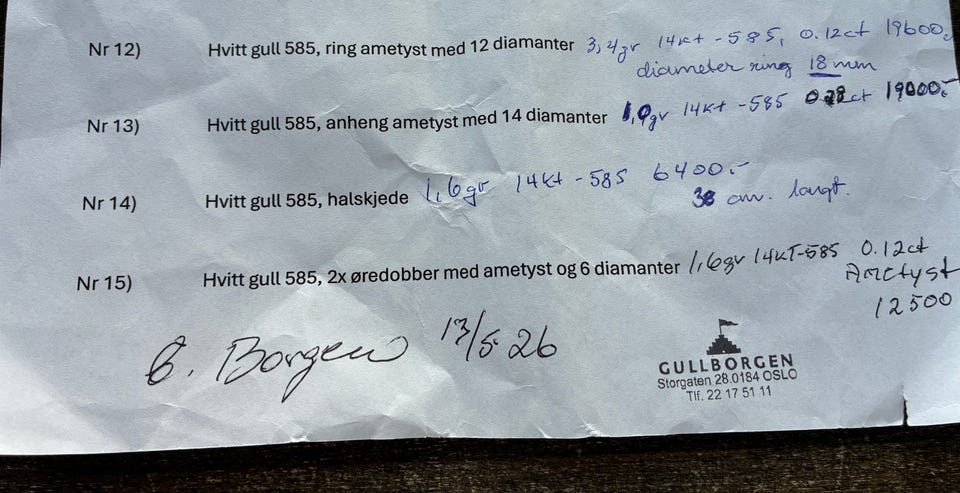 Nr 12) Hvitt gull 585, ring ametyst med 12 diamanter 3,4gr 14kt -585, 0.12ct 19600,
diameter ring 18 mm
Nr 13) Hvitt gull 585, anheng ametyst med 14 diamanter 1,0gr 14kt -585 0.28ct 19000,-
Nr 14) Hvitt gull 585, halskjede 1,6gr 14kt -585 6400.-
38 cm. langt.
Nr 15) Hvitt gull 585, 2x øredobber med ametyst og 6 diamanter 1,6gr 14KT-585 0.12ct
Ametyst
12500
Borgen 13/5-26
GULLBORGEN
Storgaten 28.0184 OSLO
Tlf. 22 17 51 11